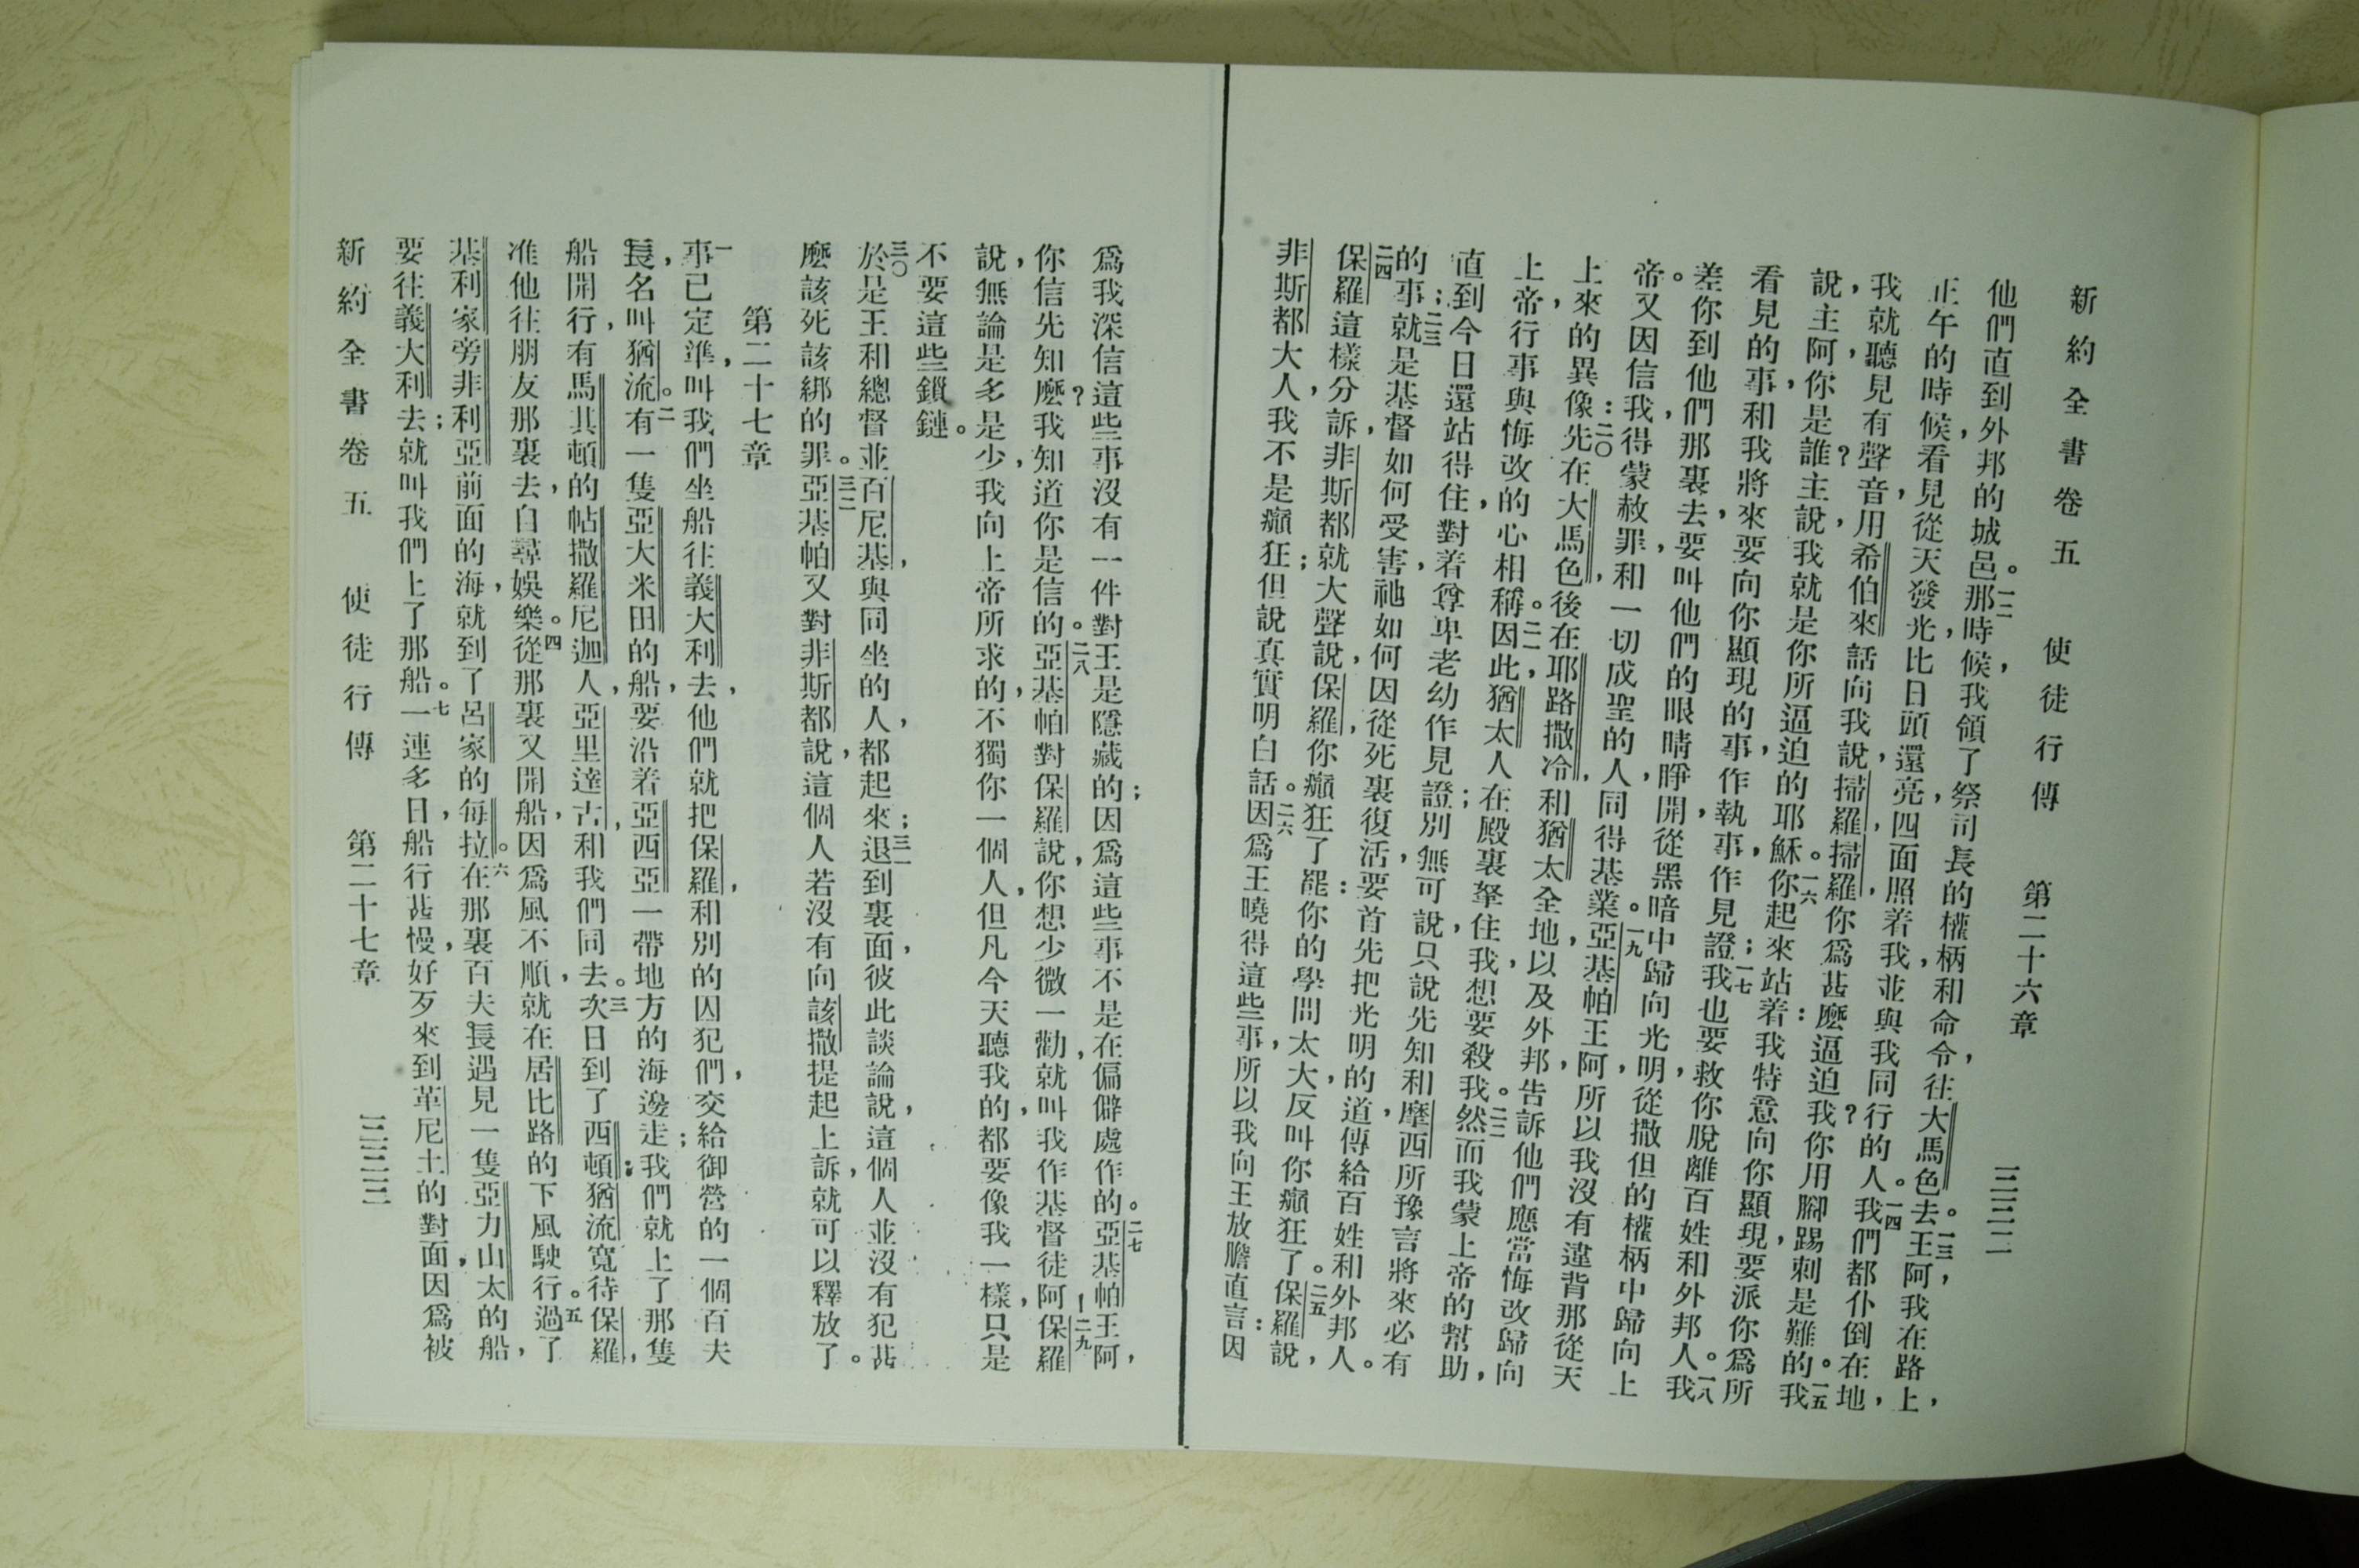 新約全書卷五 使徒行傳 第二十六章 三三二
他們直到外邦的城邑。一二那時候，我領了祭司長的權柄和命令，往大馬色去。一三王阿，我在路上，
正午的時候，看見從天發光，比日頭還亮，四面照着我，並與我同行的人。一四我們都仆倒在地，
我就聽見有聲音，用希伯來話向我說，掃羅，掃羅，你爲甚麼逼迫我？你用腳踢刺是難的。一五我
說，主阿，你是誰？主說，我就是你所逼迫的耶穌。一六你起來站着：我特意向你顯現，要派你爲所
看見的事，和我將來要向你顯現的事，作執事，作見證；一七我也要救你脫離百姓和外邦人。一八我
差你到他們那裏去，要叫他們的眼睛睜開，從黑暗中歸向光明，從撒但的權柄中歸向上
帝。又因信我，得蒙赦罪，和一切成聖的人，同得基業。一九亞基帕王阿，所以我沒有違背那從天
上來的異像：二〇先在大馬色，後在耶路撒冷，和猶太全地，以及外邦，告訴他們應當悔改歸向
上帝，行事與悔改的心相稱。二一因此，猶太人在殿裏拏住我，想要殺我。二二然而我蒙上帝的幫助，
直到今日還站得住，對着尊卑老幼作見證；別無可說，只說先知和摩西所豫言將來必有
的事；二三就是基督如何受害，祂如何因從死裏復活，要首先把光明的道，傳給百姓和外邦人。
二四保羅這樣分訴，非斯都就大聲說，保羅，你癲狂了罷：你的學問太大，反叫你癲狂了。二五保羅說，
非斯都大人，我不是癲狂；但說真實明白話。二六因爲王曉得這些事，所以我向王放膽直言：因
爲我深信這些事沒有一件對王是隱藏的；因爲這些事不是在偏僻處作的。二七亞基帕王阿，
你信先知麼？我知道你是信的。二八亞基帕對保羅說，你想少微一勸，就叫我作基督徒阿！二九保羅
說，無論是多是少，我向上帝所求的，不獨你一個人，但凡今天聽我的，都要像我一樣，只是
不要這些鎖鏈。
三〇於是王和總督並百尼基，與同坐的人，都起來；三一退到裏面，彼此談論說，這個人並沒有犯甚
麼該死該綁的罪。三二亞基帕又對非斯都說，這個人若沒有向該撒提起上訴，就可以釋放了。
第二十七章
一事已定準，叫我們坐船往義大利去，他們就把保羅，和別的囚犯們，交給御營的一個百夫
長，名叫猶流。二有一隻亞大米田的船，要沿着亞西亞一帶地方的海邊走；我們就上了那隻
船開行，有馬其頓的帖撒羅尼迦人，亞里達古，和我們同去。三次日到了西頓；猶流寬待保羅，
准他往朋友那裏去，自尋娛樂。四從那裏又開船，因爲風不順，就在居比路的下風駛行。五過了
基利家旁非利亞前面的海，就到了呂家的每拉。六在那裏百夫長遇見一隻亞力山太的船，
要往義大利去；就叫我們上了那船。七一連多日，船行甚慢，好歹來到革尼土的對面，因爲被
新約全書卷五 使徒行傳 第二十七章 三三三